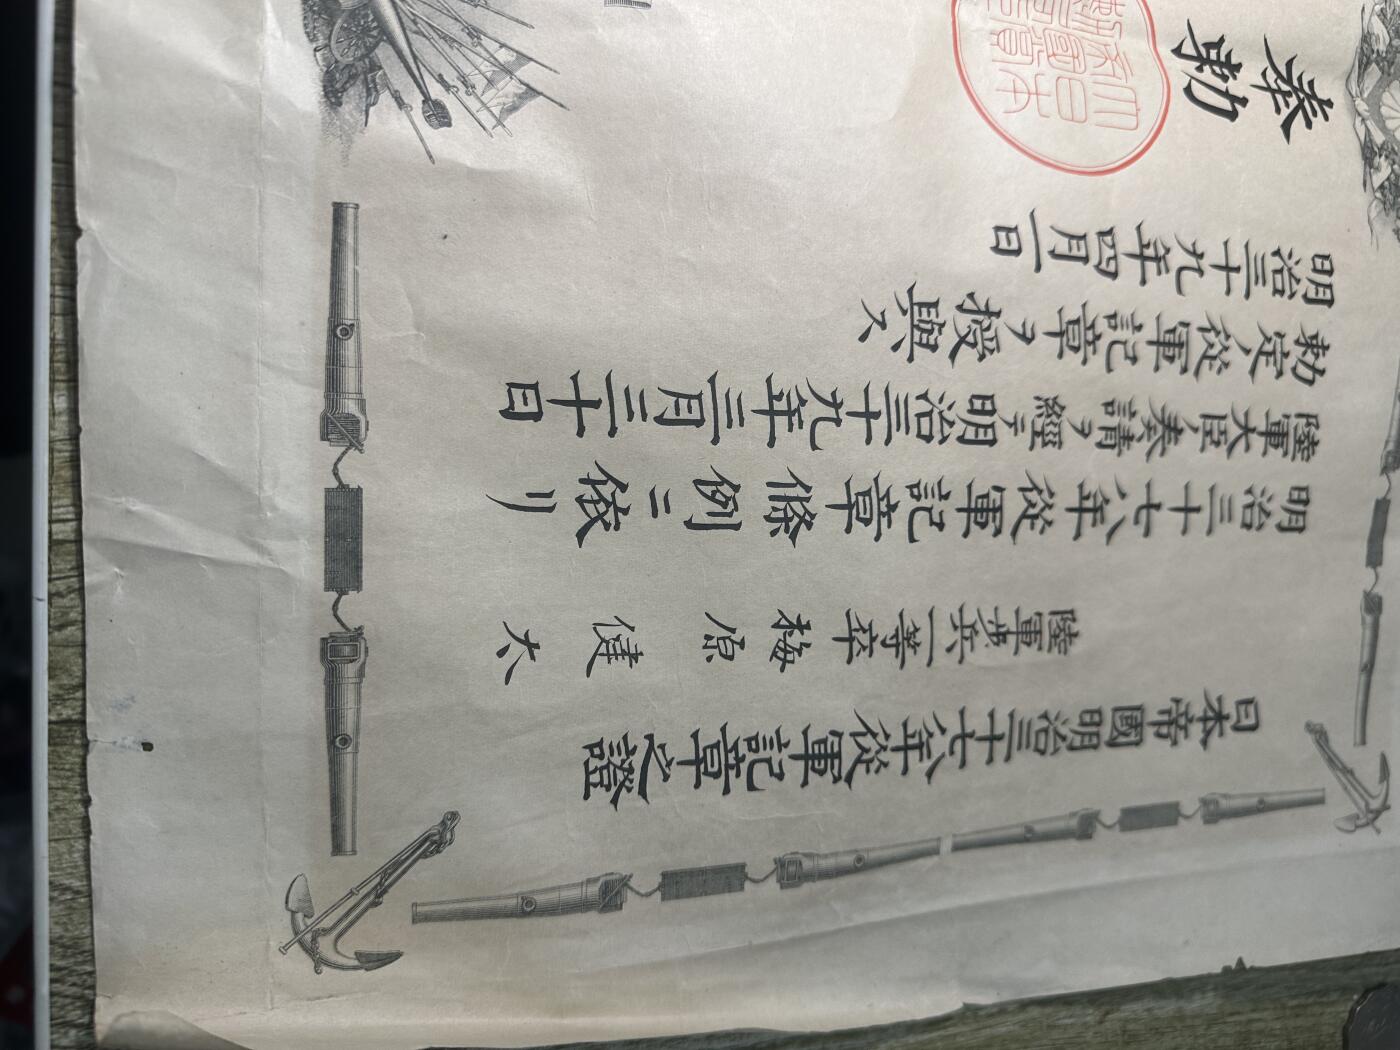 日本帝國明治三十七八年從軍記章之證
陸軍歩兵一等卒 梅原健太
明治三十七八年從軍記章條例ニ依リ
陸軍大臣ノ奏請ヲ經テ明治三十九年三月三十日
勅定ノ從軍記章ヲ授與ス
明治三十九年四月一日
奉勅